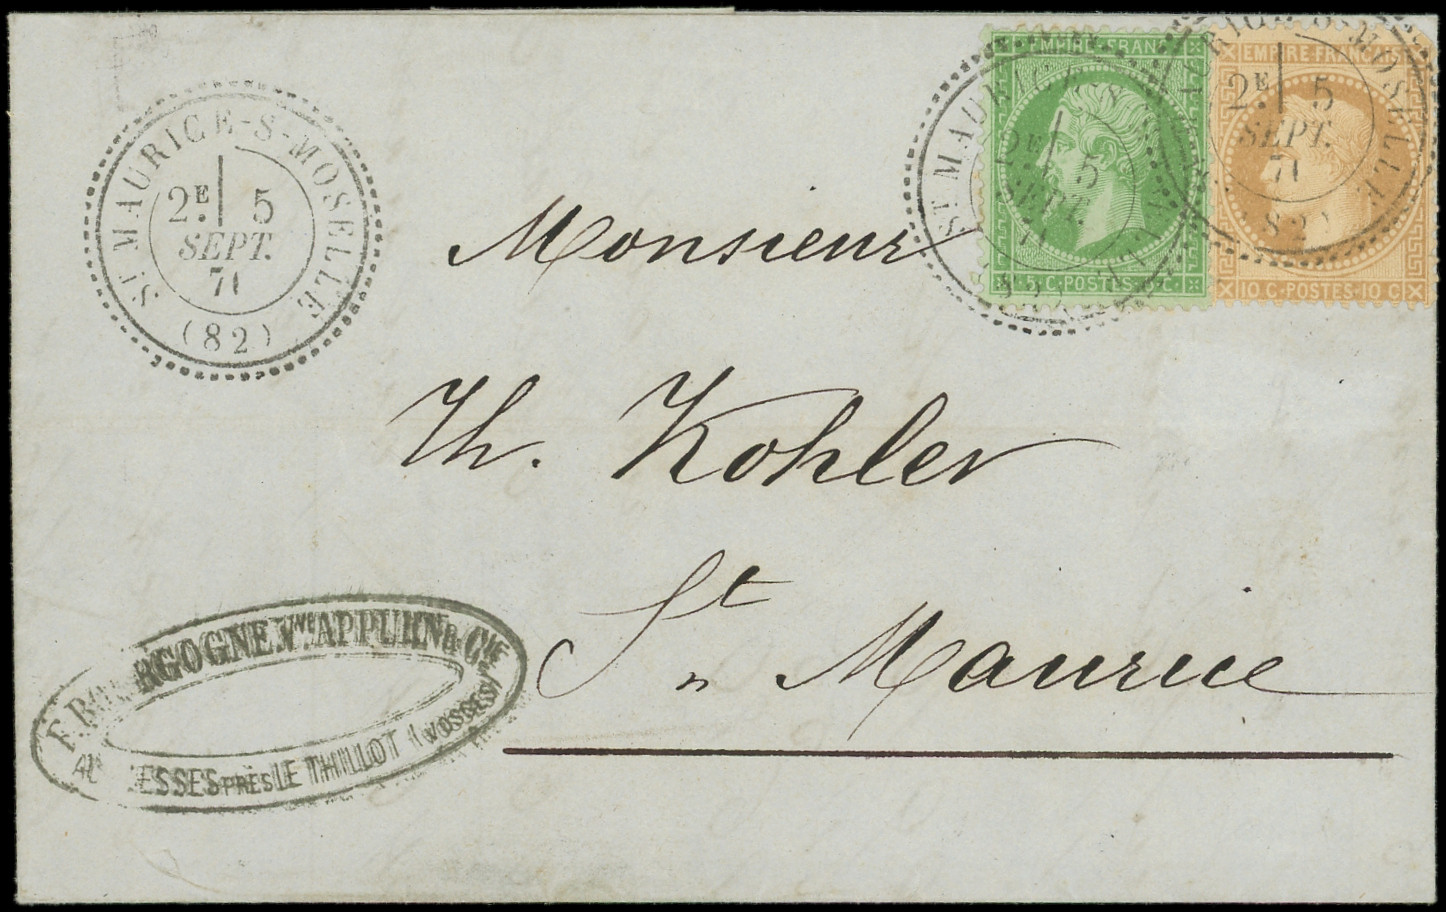 ST MAURICE-S-MOSELLE
2E 5
SEPT.
71
(82)
EMPIRE FRANC
5 C. POSTES 5 C.
ST MAURICE-S
2E 5
SEPT.
71
EMPIRE FRANÇAIS
10 C. POSTES 10 C
MOSELLE
2E 5
SEPT.
71
82
Monsieur
Th. Kohler
St Maurice
GOGNE Vve APPUHN & Cie
PRÈS LE THILLOT (VOSGES)